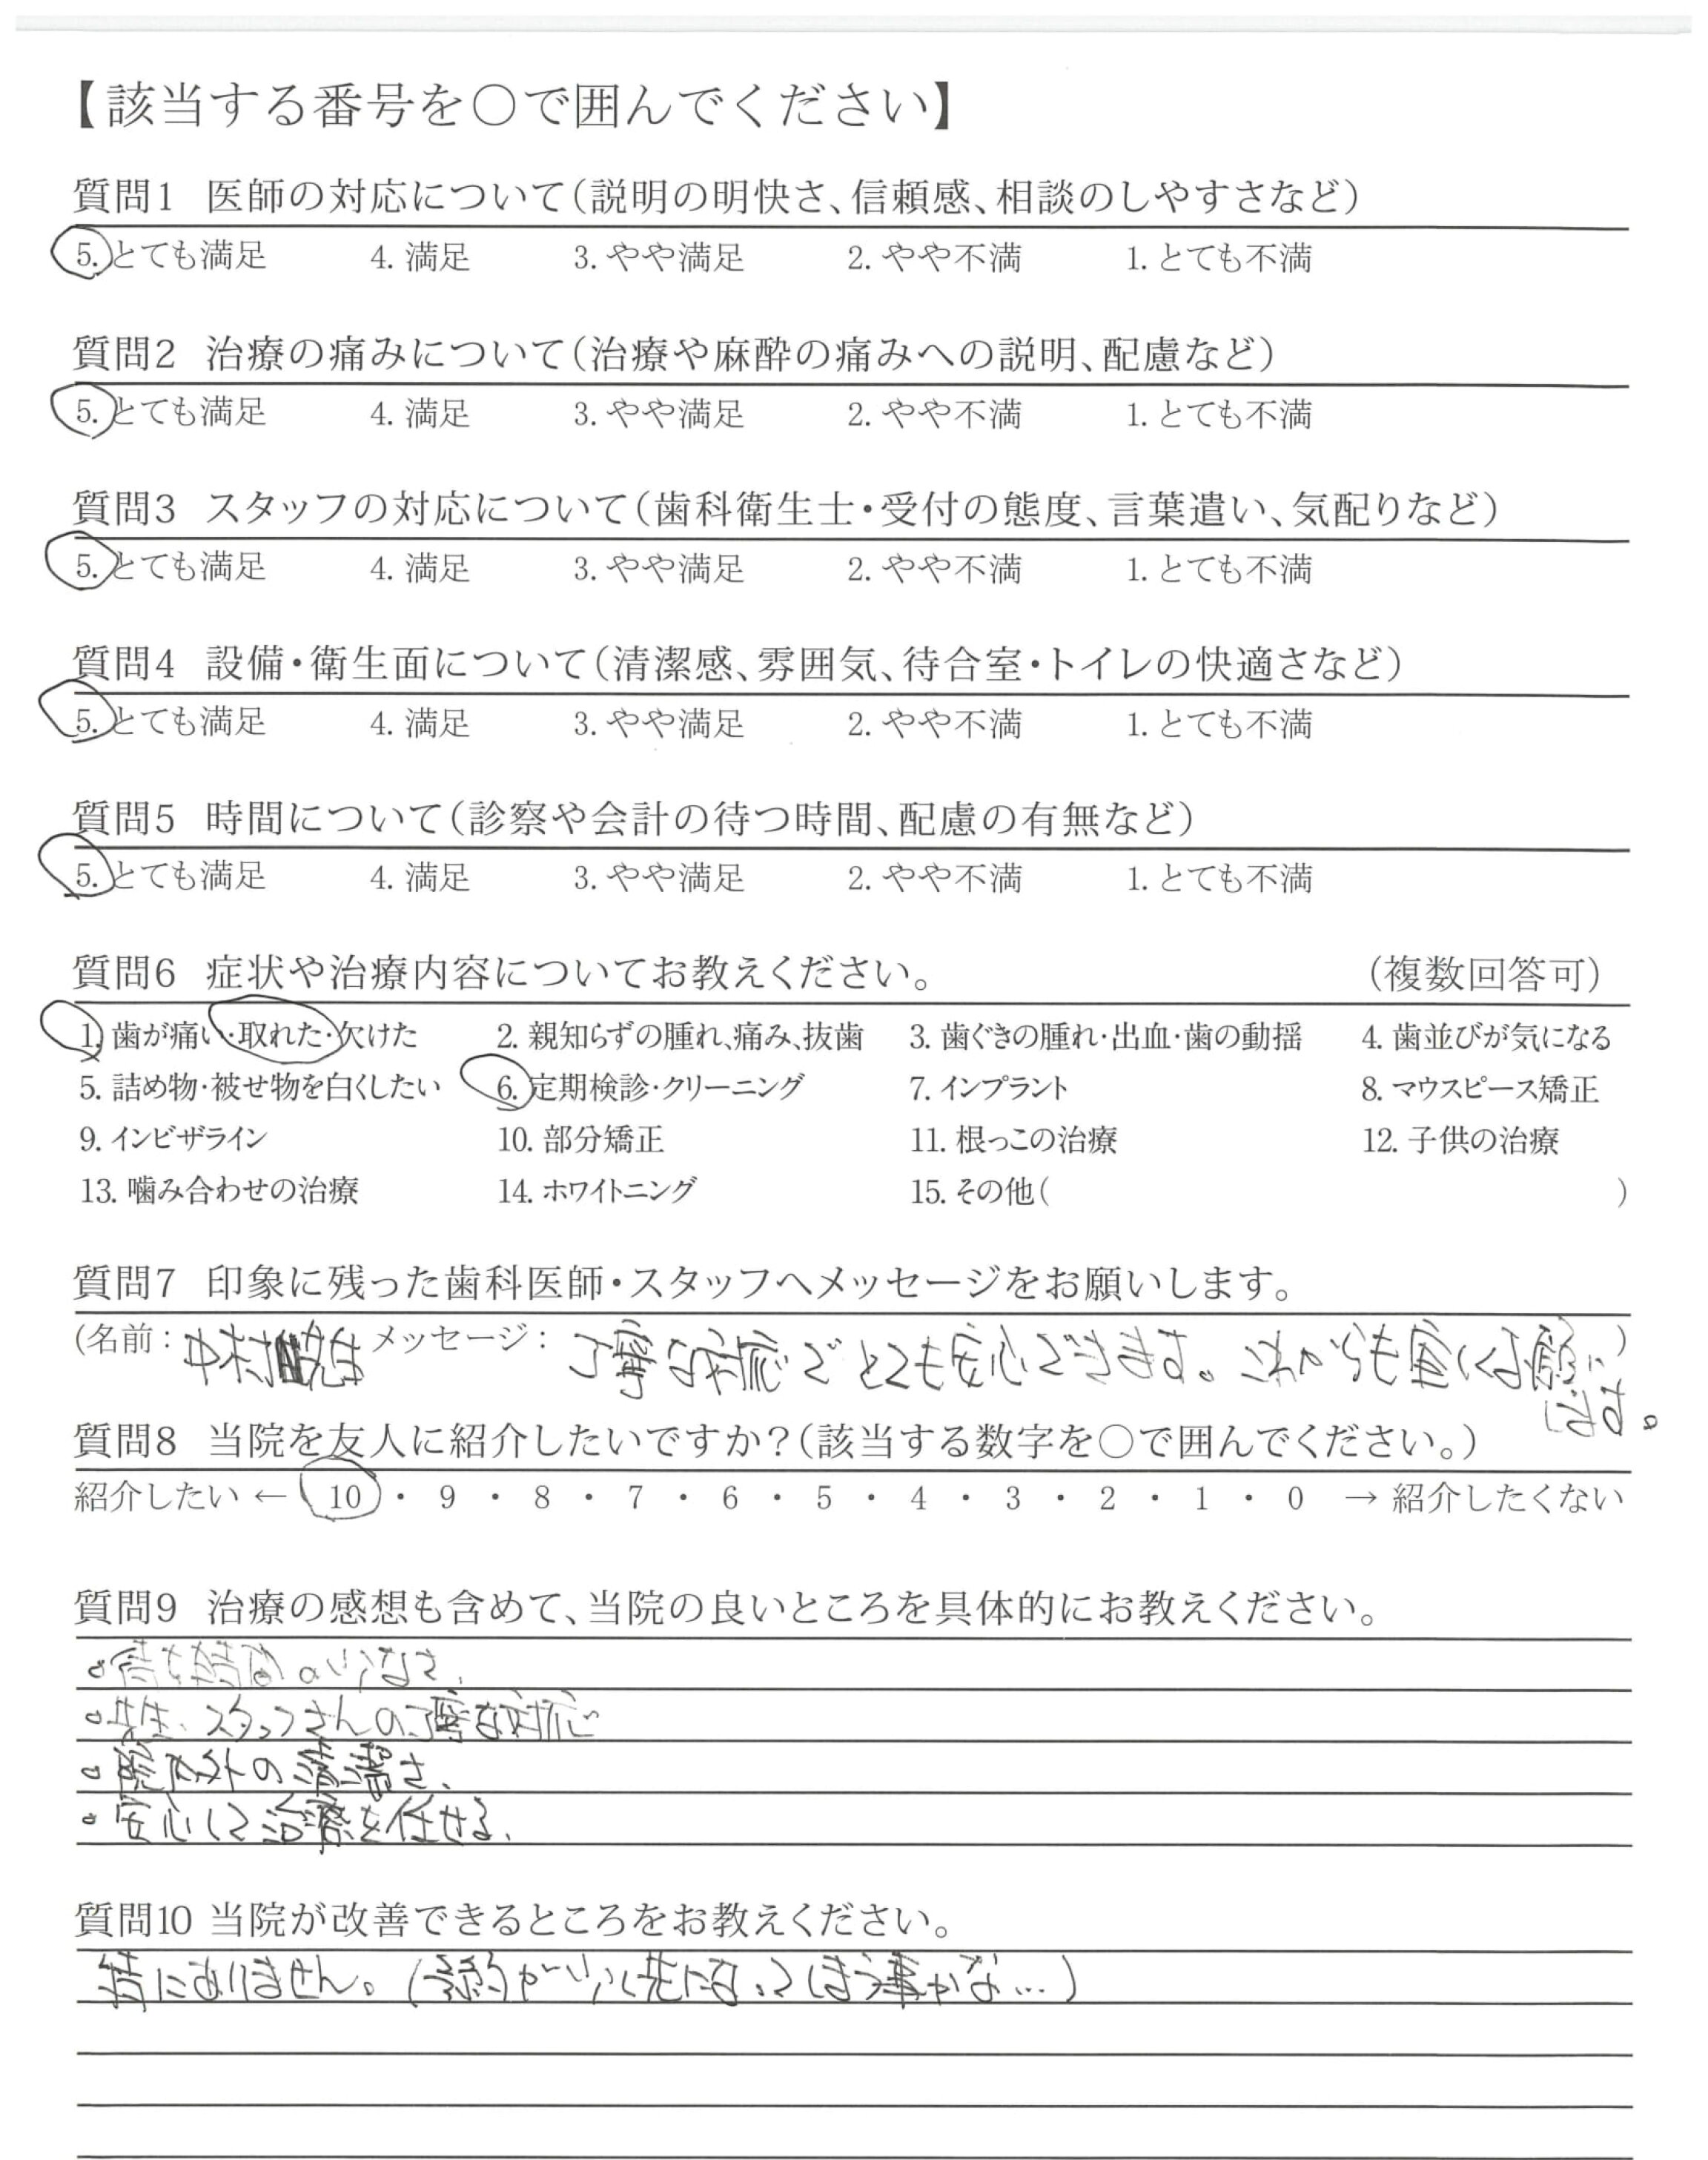 【該当する番号を○で囲んでください】
質問1 医師の対応について(説明の明快さ、信頼感、相談のしやすさなど)
5. とても満足 4. 満足 3. やや満足 2. やや不満 1. とても不満
質問2 治療の痛みについて(治療や麻酔の痛みへの説明、配慮など)
5. とても満足 4. 満足 3. やや満足 2. やや不満 1. とても不満
質問3 スタッフの対応について(歯科衛生士・受付の態度、言葉遣い、気配りなど)
5. とても満足 4. 満足 3. やや満足 2. やや不満 1. とても不満
質問4 設備・衛生面について(清潔感、雰囲気、待合室・トイレの快適さなど)
5. とても満足 4. 満足 3. やや満足 2. やや不満 1. とても不満
質問5 時間について(診察や会計の待つ時間、配慮の有無など)
5. とても満足 4. 満足 3. やや満足 2. やや不満 1. とても不満
質問6 症状や治療内容についてお教えください。 (複数回答可)
1. 歯が痛い・取れた・欠けた 2. 親知らずの腫れ、痛み、抜歯 3. 歯ぐきの腫れ・出血・歯の動揺 4. 歯並びが気になる
5. 詰め物・被せ物を白くしたい 6. 定期検診・クリーニング 7. インプラント 8. マウスピース矯正
9. インビザライン 10. 部分矯正 11. 根っこの治療 12. 子供の治療
13. 噛み合わせの治療 14. ホワイトニング 15. その他( )
質問7 印象に残った歯科医師・スタッフへメッセージをお願いします。
(名前: 中村 先生 メッセージ: 丁寧な対応でとても安心できます。これからも宜しくお願い)
します。
質問8 当院を友人に紹介したいですか?(該当する数字を○で囲んでください。)
紹介したい ← 10 ・ 9 ・ 8 ・ 7 ・ 6 ・ 5 ・ 4 ・ 3 ・ 2 ・ 1 ・ 0 → 紹介したくない
質問9 治療の感想も含めて、当院の良いところを具体的にお教えください。
・待ち時間の少なさ、
・先生、スタッフさんの丁寧な対応
・院内外の清潔さ、
・安心して治療を任せる、
質問10 当院が改善できるところをお教えください。
特にありません。(予約が 先になってしまう事かな…)